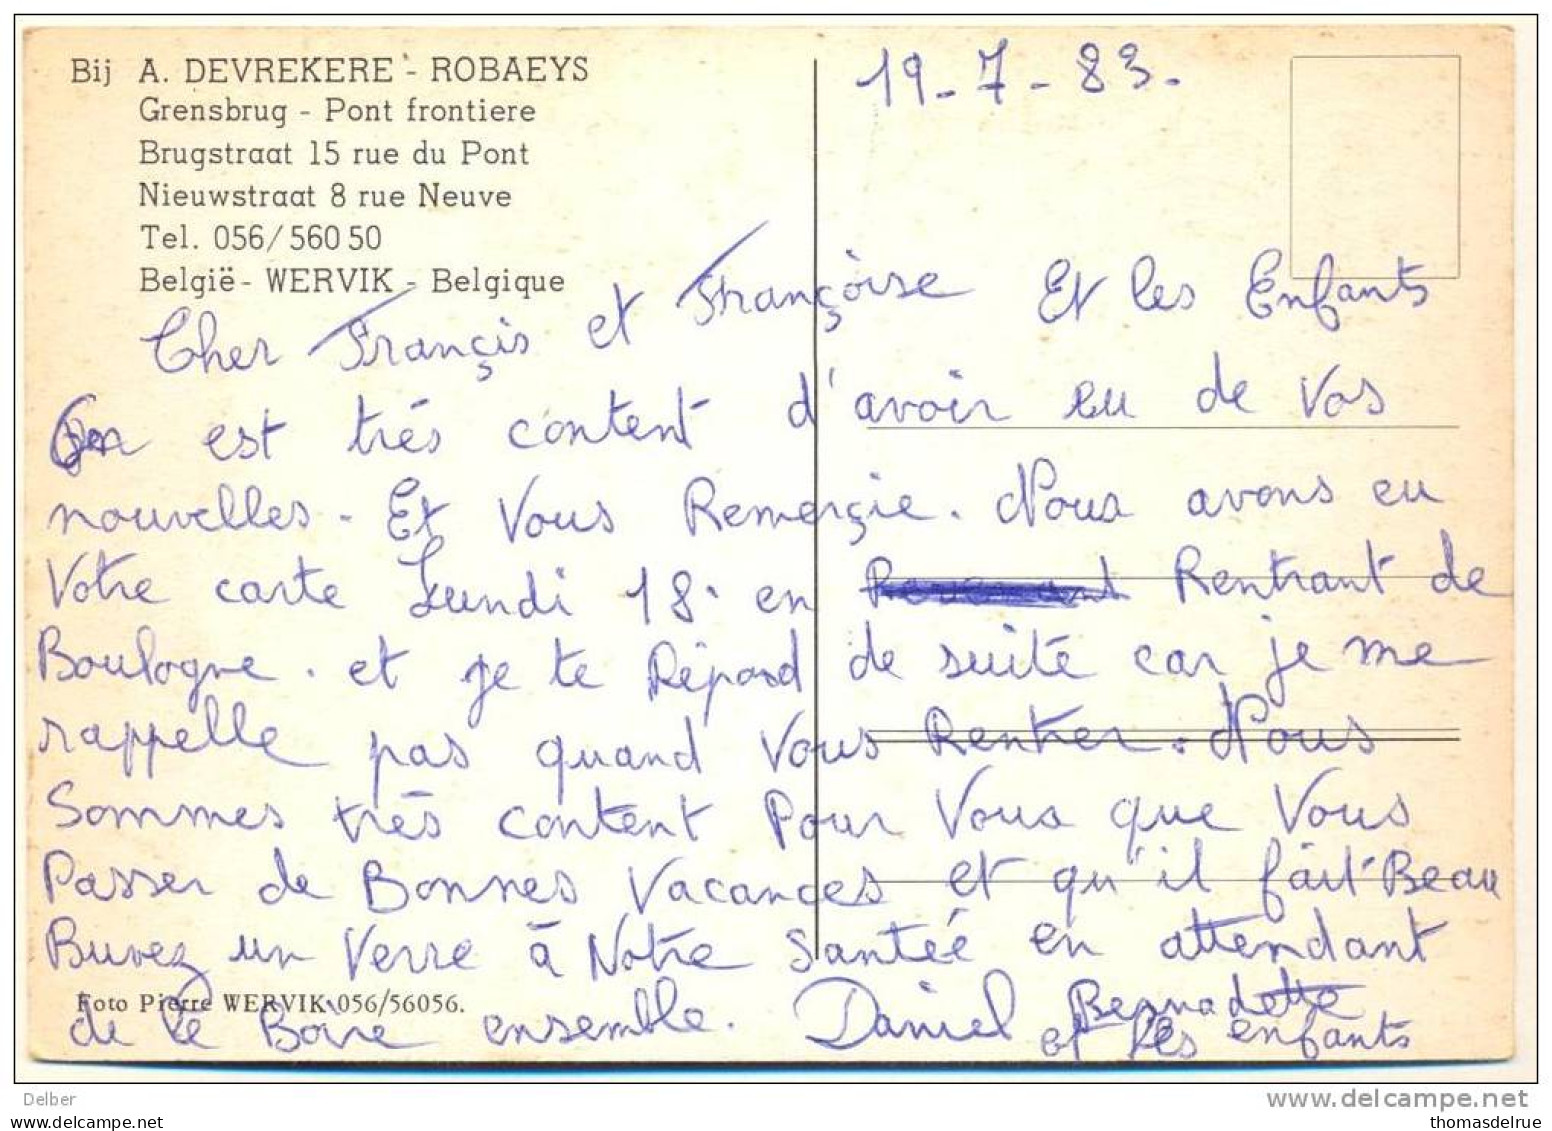 Bij A. DEVREKERE - ROBAEYS
Grensbrug - Pont frontiere
Brugstraat 15 rue du Pont
Nieuwstraat 8 rue Neuve
Tel. 056/560 50
België - WERVIK - Belgique
19-7-83.
Cher Françis et Françòise Et les Enfants
On est très content d'avoir eu de Vos
nouvelles. Et Vous Remerçie. Nous avons eu
Votre carte Lundi 18. en Rentrant de
Boulogne. et je te Répond de suite car je me
rappelle pas quand Vous Rentrer. Nous
Sommes très content Pour Vous que Vous
Passer de Bonnes Vacances et qu'il fait Beau
Buvez un Verre à Notre Santée en attendant
de le Boire ensemble. Daniel Bernadette
et les enfants
Foto Pierre WERVIK 056/56056.
Delber
www.delcampe.net
www.numisbids.com
thomasdelrue